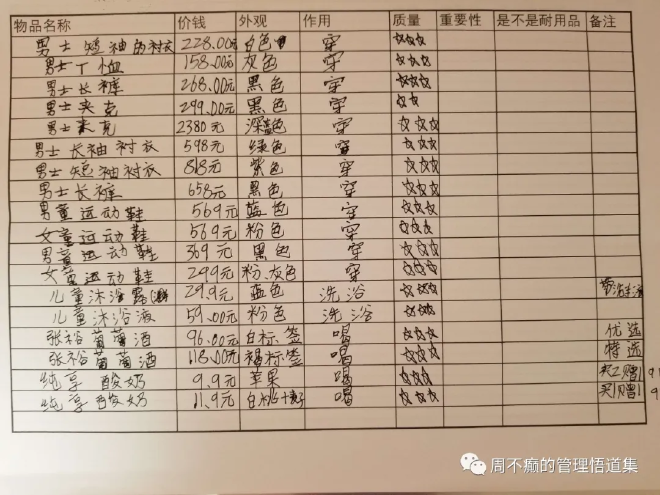 物品名称 价钱 外观 作用 质量 重要性 是不是耐用品 备注
男士短袖的衬衣 228.00元 白色 穿 ☆☆☆
男士T恤 158.00元 灰色 穿 ☆☆☆
男士长裤 268.00元 黑色 穿 ☆☆☆
男士夹克 299.00元 黑色 穿 ☆☆
男士夹克 2380元 深蓝色 穿 ☆☆☆
男士长袖衬衣 598元 绿色 穿 ☆☆☆
男士短袖衬衣 818元 紫色 穿 ☆☆☆
男士长裤 658元 黑色 穿 ☆☆☆
男童运动鞋 569元 蓝色 穿 ☆☆☆
女童运动鞋 569元 粉色 穿 ☆☆☆
男童运动鞋 369元 黑色 穿 ☆☆☆
女童运动鞋 299元 粉.灰色 穿 ☆☆☆
儿童沐浴露 29.9元 蓝色 洗浴 ☆☆☆
儿童沐浴液 59.00元 粉色 洗浴 ☆☆☆
张裕葡萄酒 96.00元 白标签 喝 ☆☆☆ 优选
张裕葡萄酒 118.00元 褐标签 喝 ☆☆☆ 特选
纯享酸奶 9.9元 苹果 喝 ☆☆☆ 买2赠1 9
纯享酸奶 11.9元 白桃 喝 ☆☆☆ 买1赠1 9
周不癫的管理悟道集